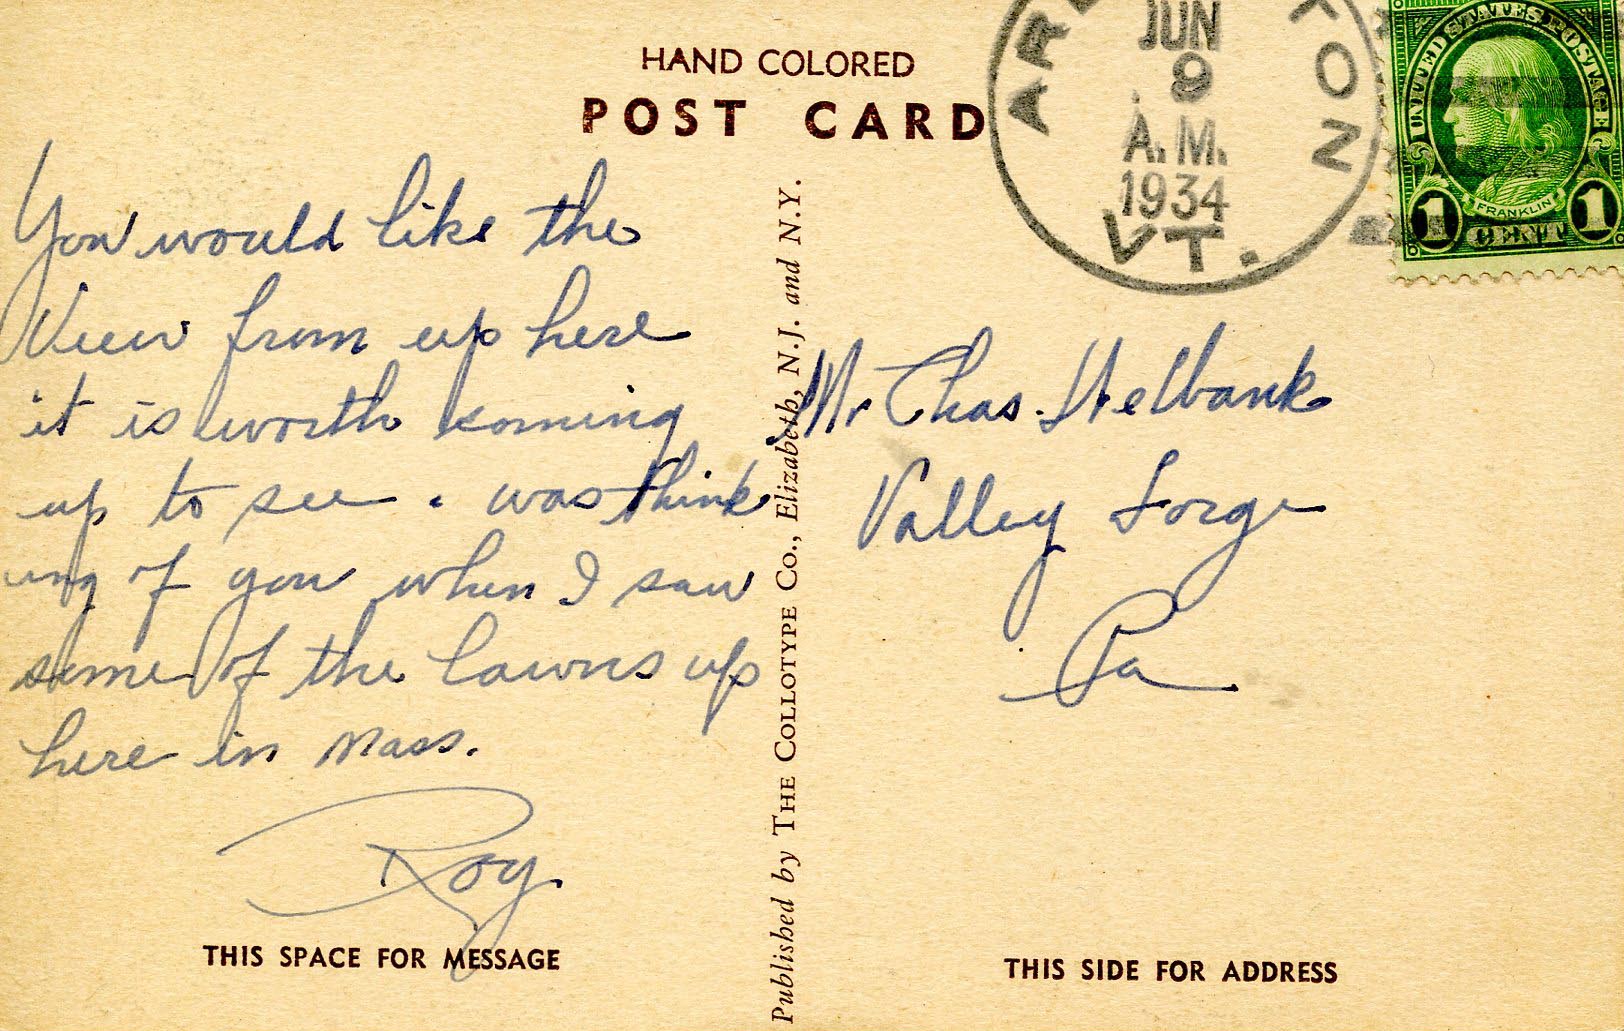 HAND COLORED
POST CARD
JUN
9
A.M.
1934
VT.
UNITED STATES POSTAGE
FRANKLIN
1 CENT 1
You would like the
View from up here
it is worth koming
up to see. was think
ing of you when I saw
some of the lawns up
here in Mass.
Roy
THIS SPACE FOR MESSAGE
Published by THE COLLOTYPE Co., Elizabeth, N.J. and N.Y.
Mr Chas. Helbank
Valley Forge
Pa
THIS SIDE FOR ADDRESS